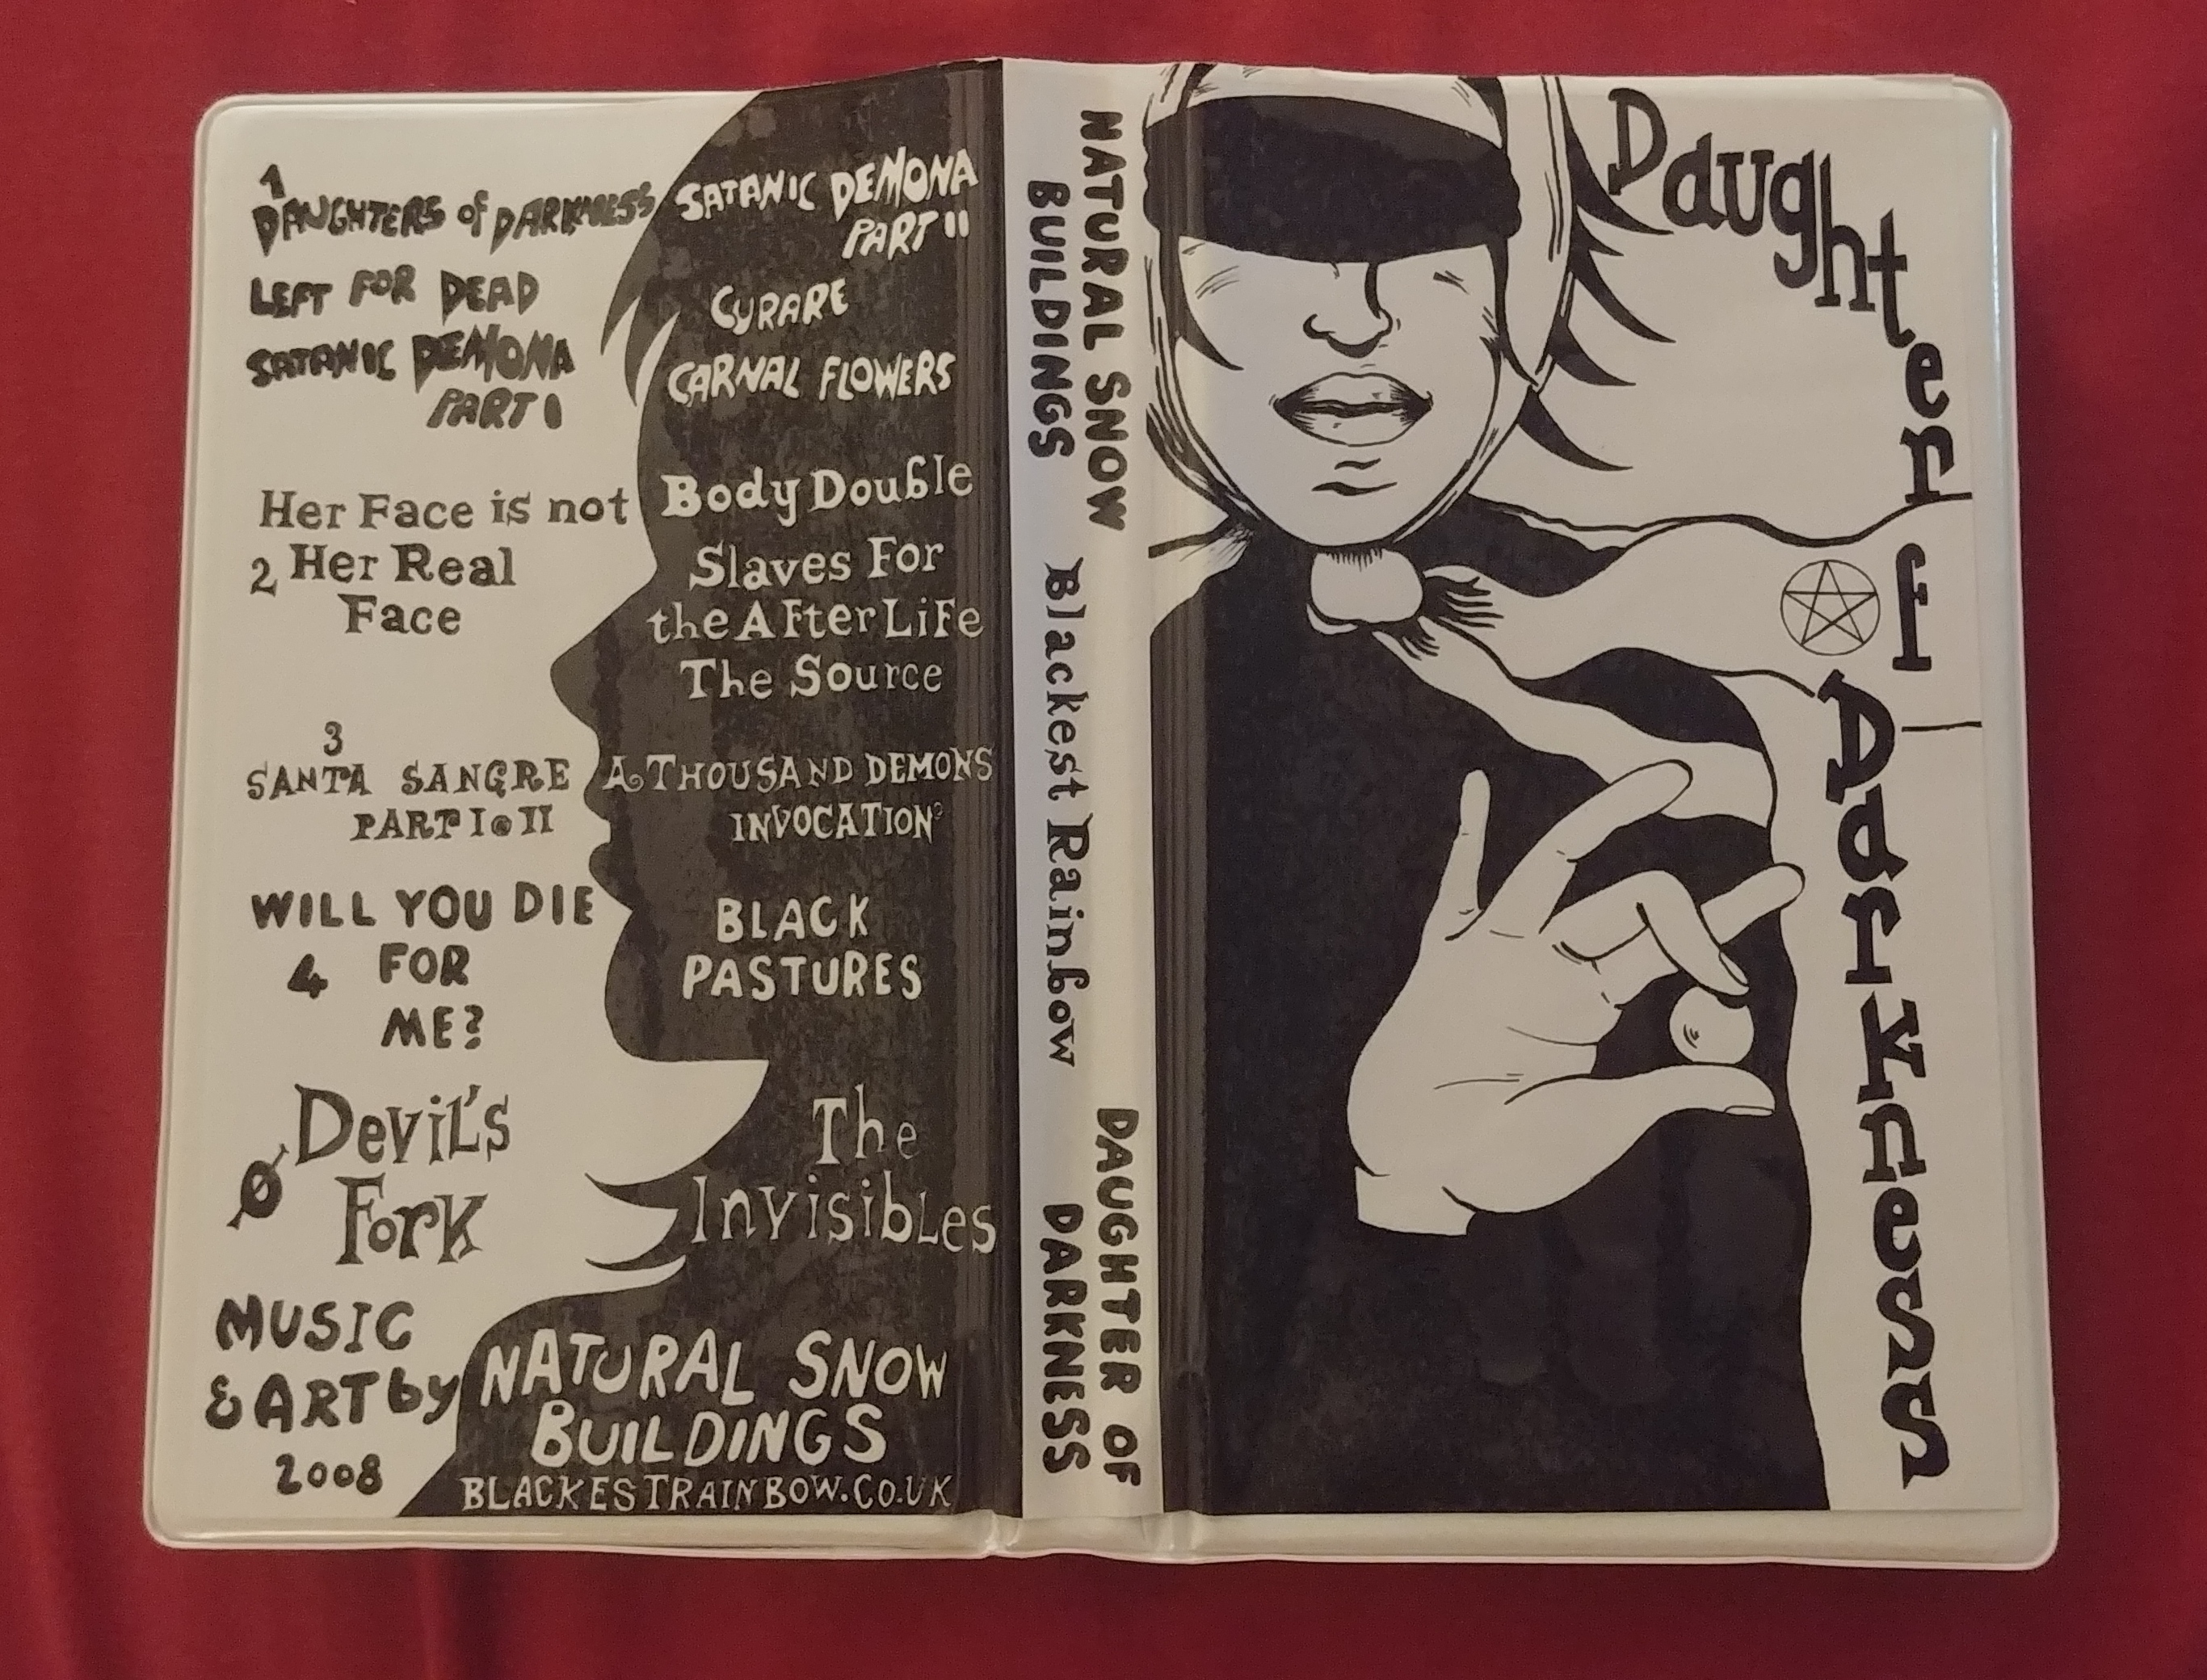 1
DAUGHTERS of DARKNESS
LEFT FOR DEAD
SATANIC DEMONA
PART I
SATANIC DEMONA
PART II
CURARE
CARNAL FLOWERS
Her Face is not
2 Her Real
Face
Body Double
Slaves For
the AFterLiFe
The Source
3
SANTA SANGRE
PART I @ II
A THOUSAND DEMONS
INVOCATION
WILL YOU DIE
4 FOR
ME?
BLACK
PASTURES
Ø Devil's
Fork
The
Invisibles
MUSIC
& ART by
2008
NATURAL SNOW
BUILDINGS
BLACKESTRAINBOW.CO.UK
NATURAL SNOW
BUILDINGS
Blackest Rainbow
DAUGHTER OF
DARKNESS
Daughter
of
Darkness